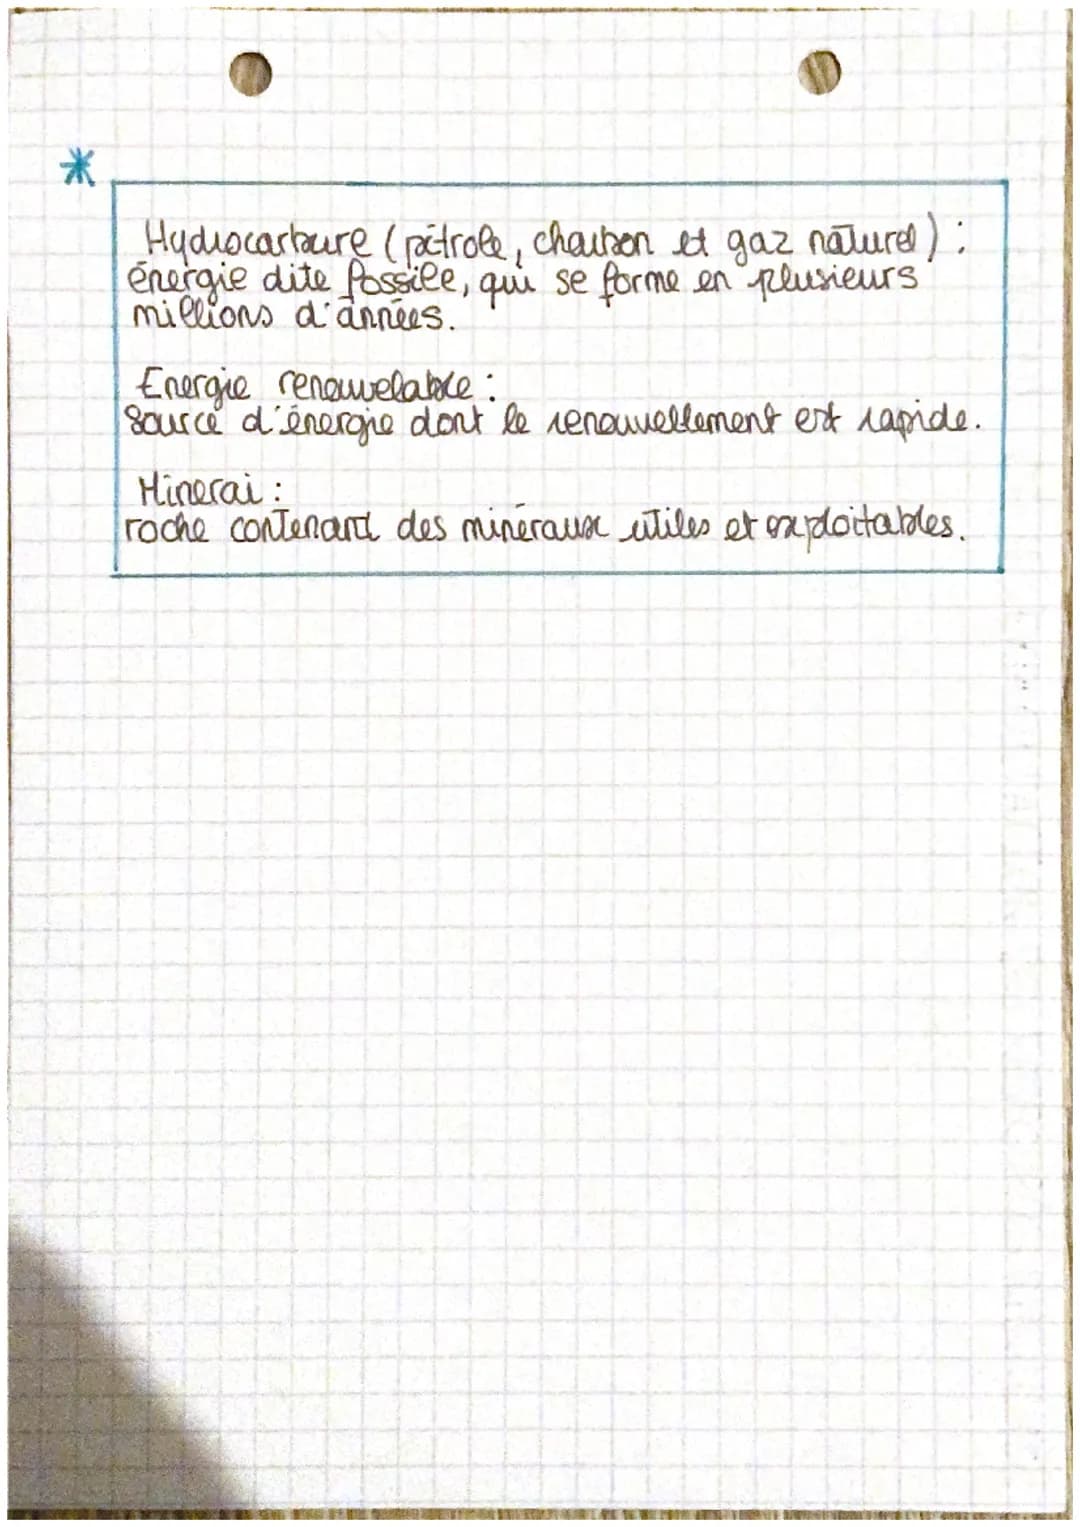 *
Hydrocarbure (pétrole, charbon et gaz naturel) :
énergie dite fossile, qui se forme en plusieurs
millions d'années.
Energie renouvelable :
Source d'énergie dont le renouvellement est rapide.
Minerai :
roche contenant des minéraux utiles et exploitables.